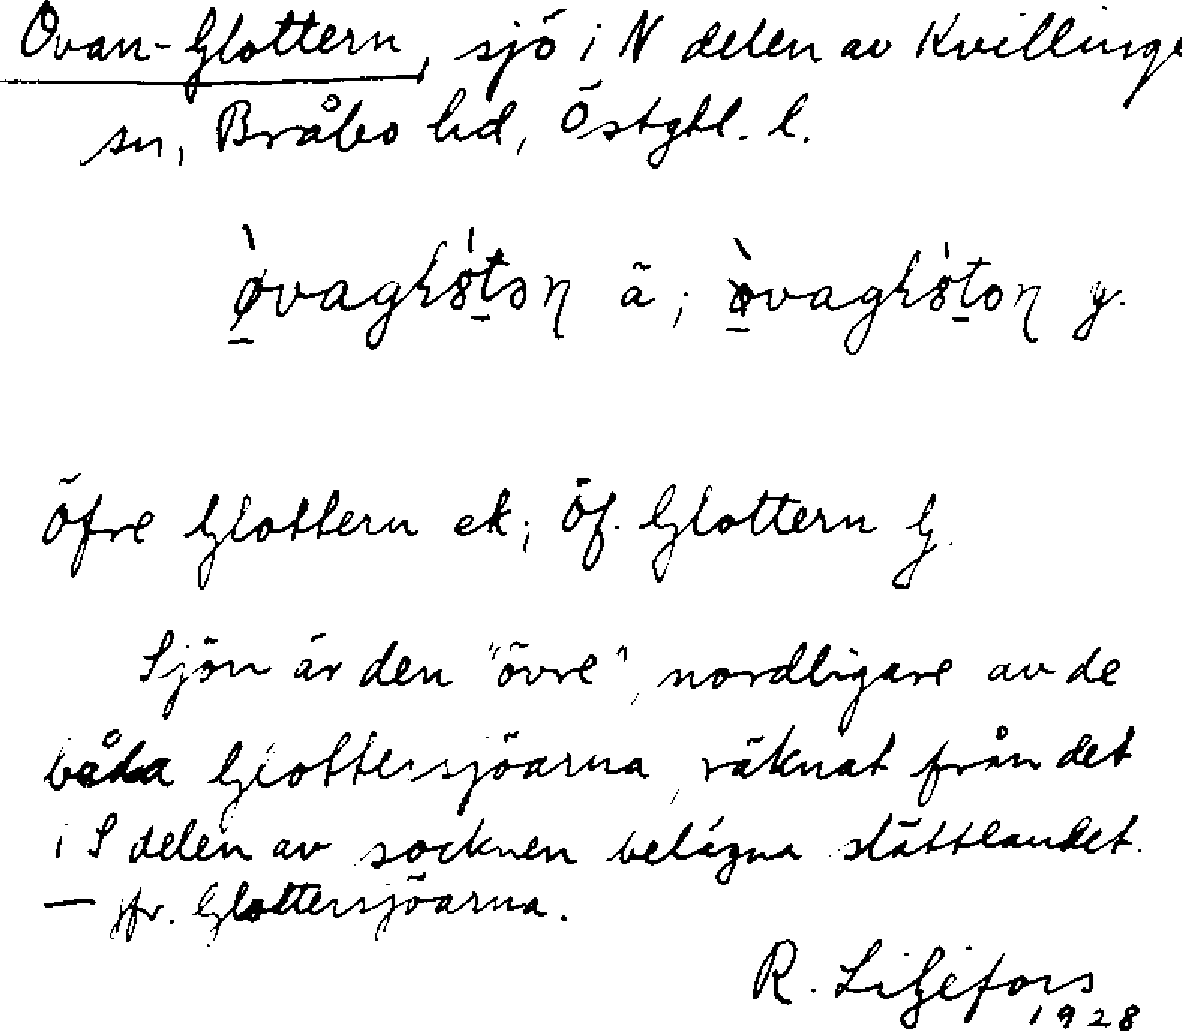 Ovan-Glottern, sjö i N delen av Kvillinge
sn, Bråbo hd, Östgtl. l.
ä; y.
Öfre Glottern ek; Öf. Glottern G.
Sjön är den "övre", nordligare av de
båda Glottersjöarna, räknat från det
i S delen av socknen belägna slättlandet.
— Jfr. Glottersjöarna.
R. Liljefors
1928